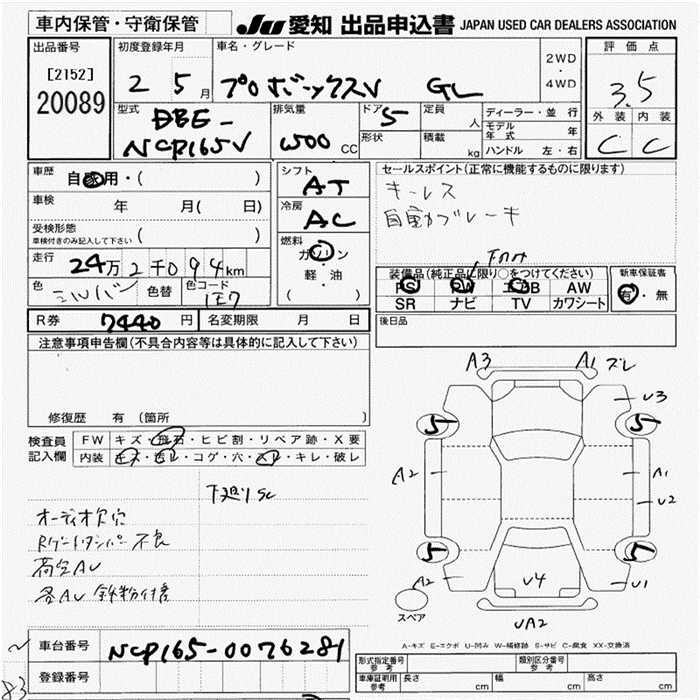 車内保管・守衛保管
JU 愛知 出品申込書 JAPAN USED CAR DEALERS ASSOCIATION
出品番号
[2152]
20089
初度登録年月
2 5月
車名・グレード
プロボックスV GL
2WD
・
4WD
評価点
3.5
外装 内装
C C
型式
DBE-
NCP165V
排気量
1500 CC
ドア
5
形状
定員
人
積載
kg
ディーラー・並行
モデル年式 年
ハンドル 左・右
車歴
自家用・( )
車検
年 月( 日)
受検形態
車検付きのみ記入して下さい ( )
走行
24万2千094km
色
シルバー
色替
色コード
1E7
シフト
AT
冷房
AC
燃料
ガソリン
軽・油
( )
セールスポイント(正常に機能するものに限ります)
キーレス
自動ブレーキ
装備品(純正品に限り○をつけてください)
PS PW エアB AW
SR ナビ TV カワシート
新車保証書
有・無
後日品
R券 7440 円 名変期限 月 日
注意事項申告欄(不具合内容等は具体的に記入して下さい)
修復歴 有(箇所 )
検査員
記入欄
FW キズ・飛石・ヒビ割・リペア跡・X要
内装 キズ・汚レ・コゲ・穴・スレ・キレ・破レ
下廻りSC
オーディオ欠穴
Rゲートダンパー不良
各AU 鉄粉付着
A3 A1 ズレ
U3
5 5
A2 A1
U2
5 5
A2 U4 U1
スペア
UA2
A-キズ E-エクボ U-凹み W-補修跡 S-サビ C-腐食 XX-交換済
車台番号 NCP165-0076281
登録番号
83
形式指定番号
参考
類別区分番号
参考
車庫証明用
参考
長さ cm 幅 cm 高さ cm